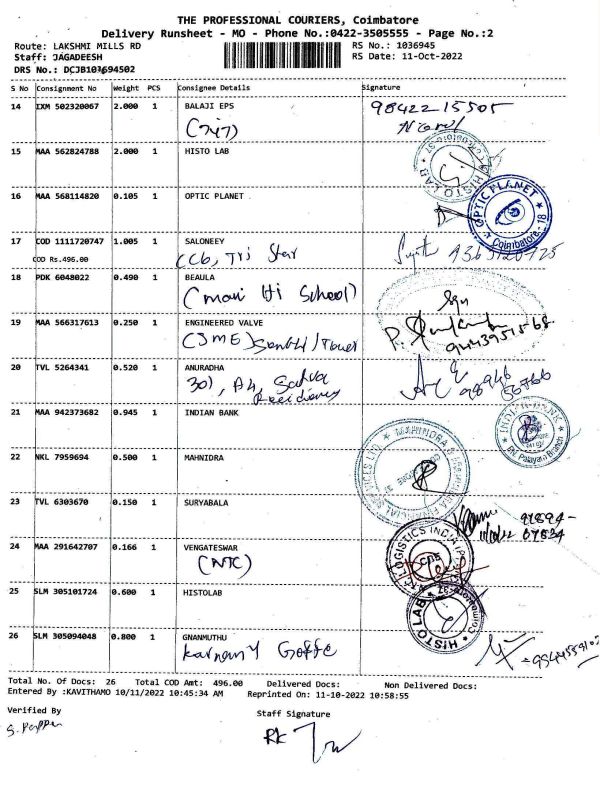 THE PROFESSIONAL COURIERS, Coimbatore
Delivery Runsheet - MO - Phone No.:0422-3505555 - Page No.:2
Route: LAKSHMI MILLS RD RS No.: 1036945
Staff: JAGADEESH RS Date: 11-Oct-2022
DRS No.: DCJB103694502
S No Consignment No Weight PCS Consignee Details Signature
14 IXM 502320067 2.000 1 BALAJI EPS 9842215505
15 MAA 562824788 2.000 1 HISTO LAB
HISTO LAB
16 MAA 568114820 0.105 1 OPTIC PLANET
OPTIC PLANET
Coimbatore - 18
17 COD 1111720747 1.005 1 SALONEEY
COD Rs.496.00 CCb, Tri Star
18 PDK 6048022 0.490 1 BEAULA
(mani Hi School)
19 MAA 566317613 0.250 1 ENGINEERED VALVE
20 TVL 5264341 0.520 1 ANURADHA
301, A4,
21 MAA 942373682 0.945 1 INDIAN BANK
INDIAN BANK
22 NKL 7959694 0.500 1 MAHNIDRA
MAHINDRA & MAHINDRA FINANCIAL SERVICES LTD
23 TVL 6303670 0.150 1 SURYABALA
97894-
67834
24 MAA 291642707 0.166 1 VENGATESWAR
(NTC)
LOGISTICS INDIA
25 SLM 305101724 0.600 1 HISTOLAB
HISTO LAB
26 SLM 305094048 0.800 1 GNANMUTHU
Total No. Of Docs: 26 Total COD Amt: 496.00 Delivered Docs: Non Delivered Docs:
Entered By :KAVITHAMO 10/11/2022 10:45:34 AM Reprinted On : 11-10-2022 10:58:55
Verified By Staff Signature